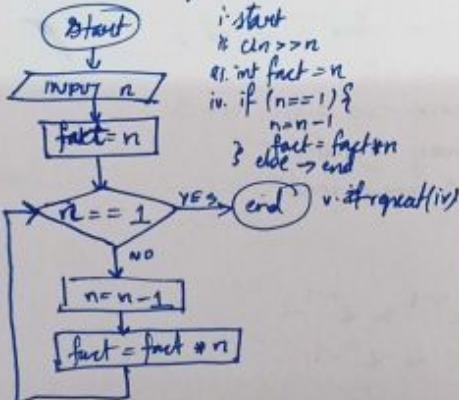 Start
INPUT n
fact = n
n == 1
YES
end
NO
n = n - 1
fact = fact * n
i. start
ii. cin >> n
iii. int fact = n
iv. if (n == 1) {
n = n - 1
fact = fact * n
} else → end
v. repeat (iv)